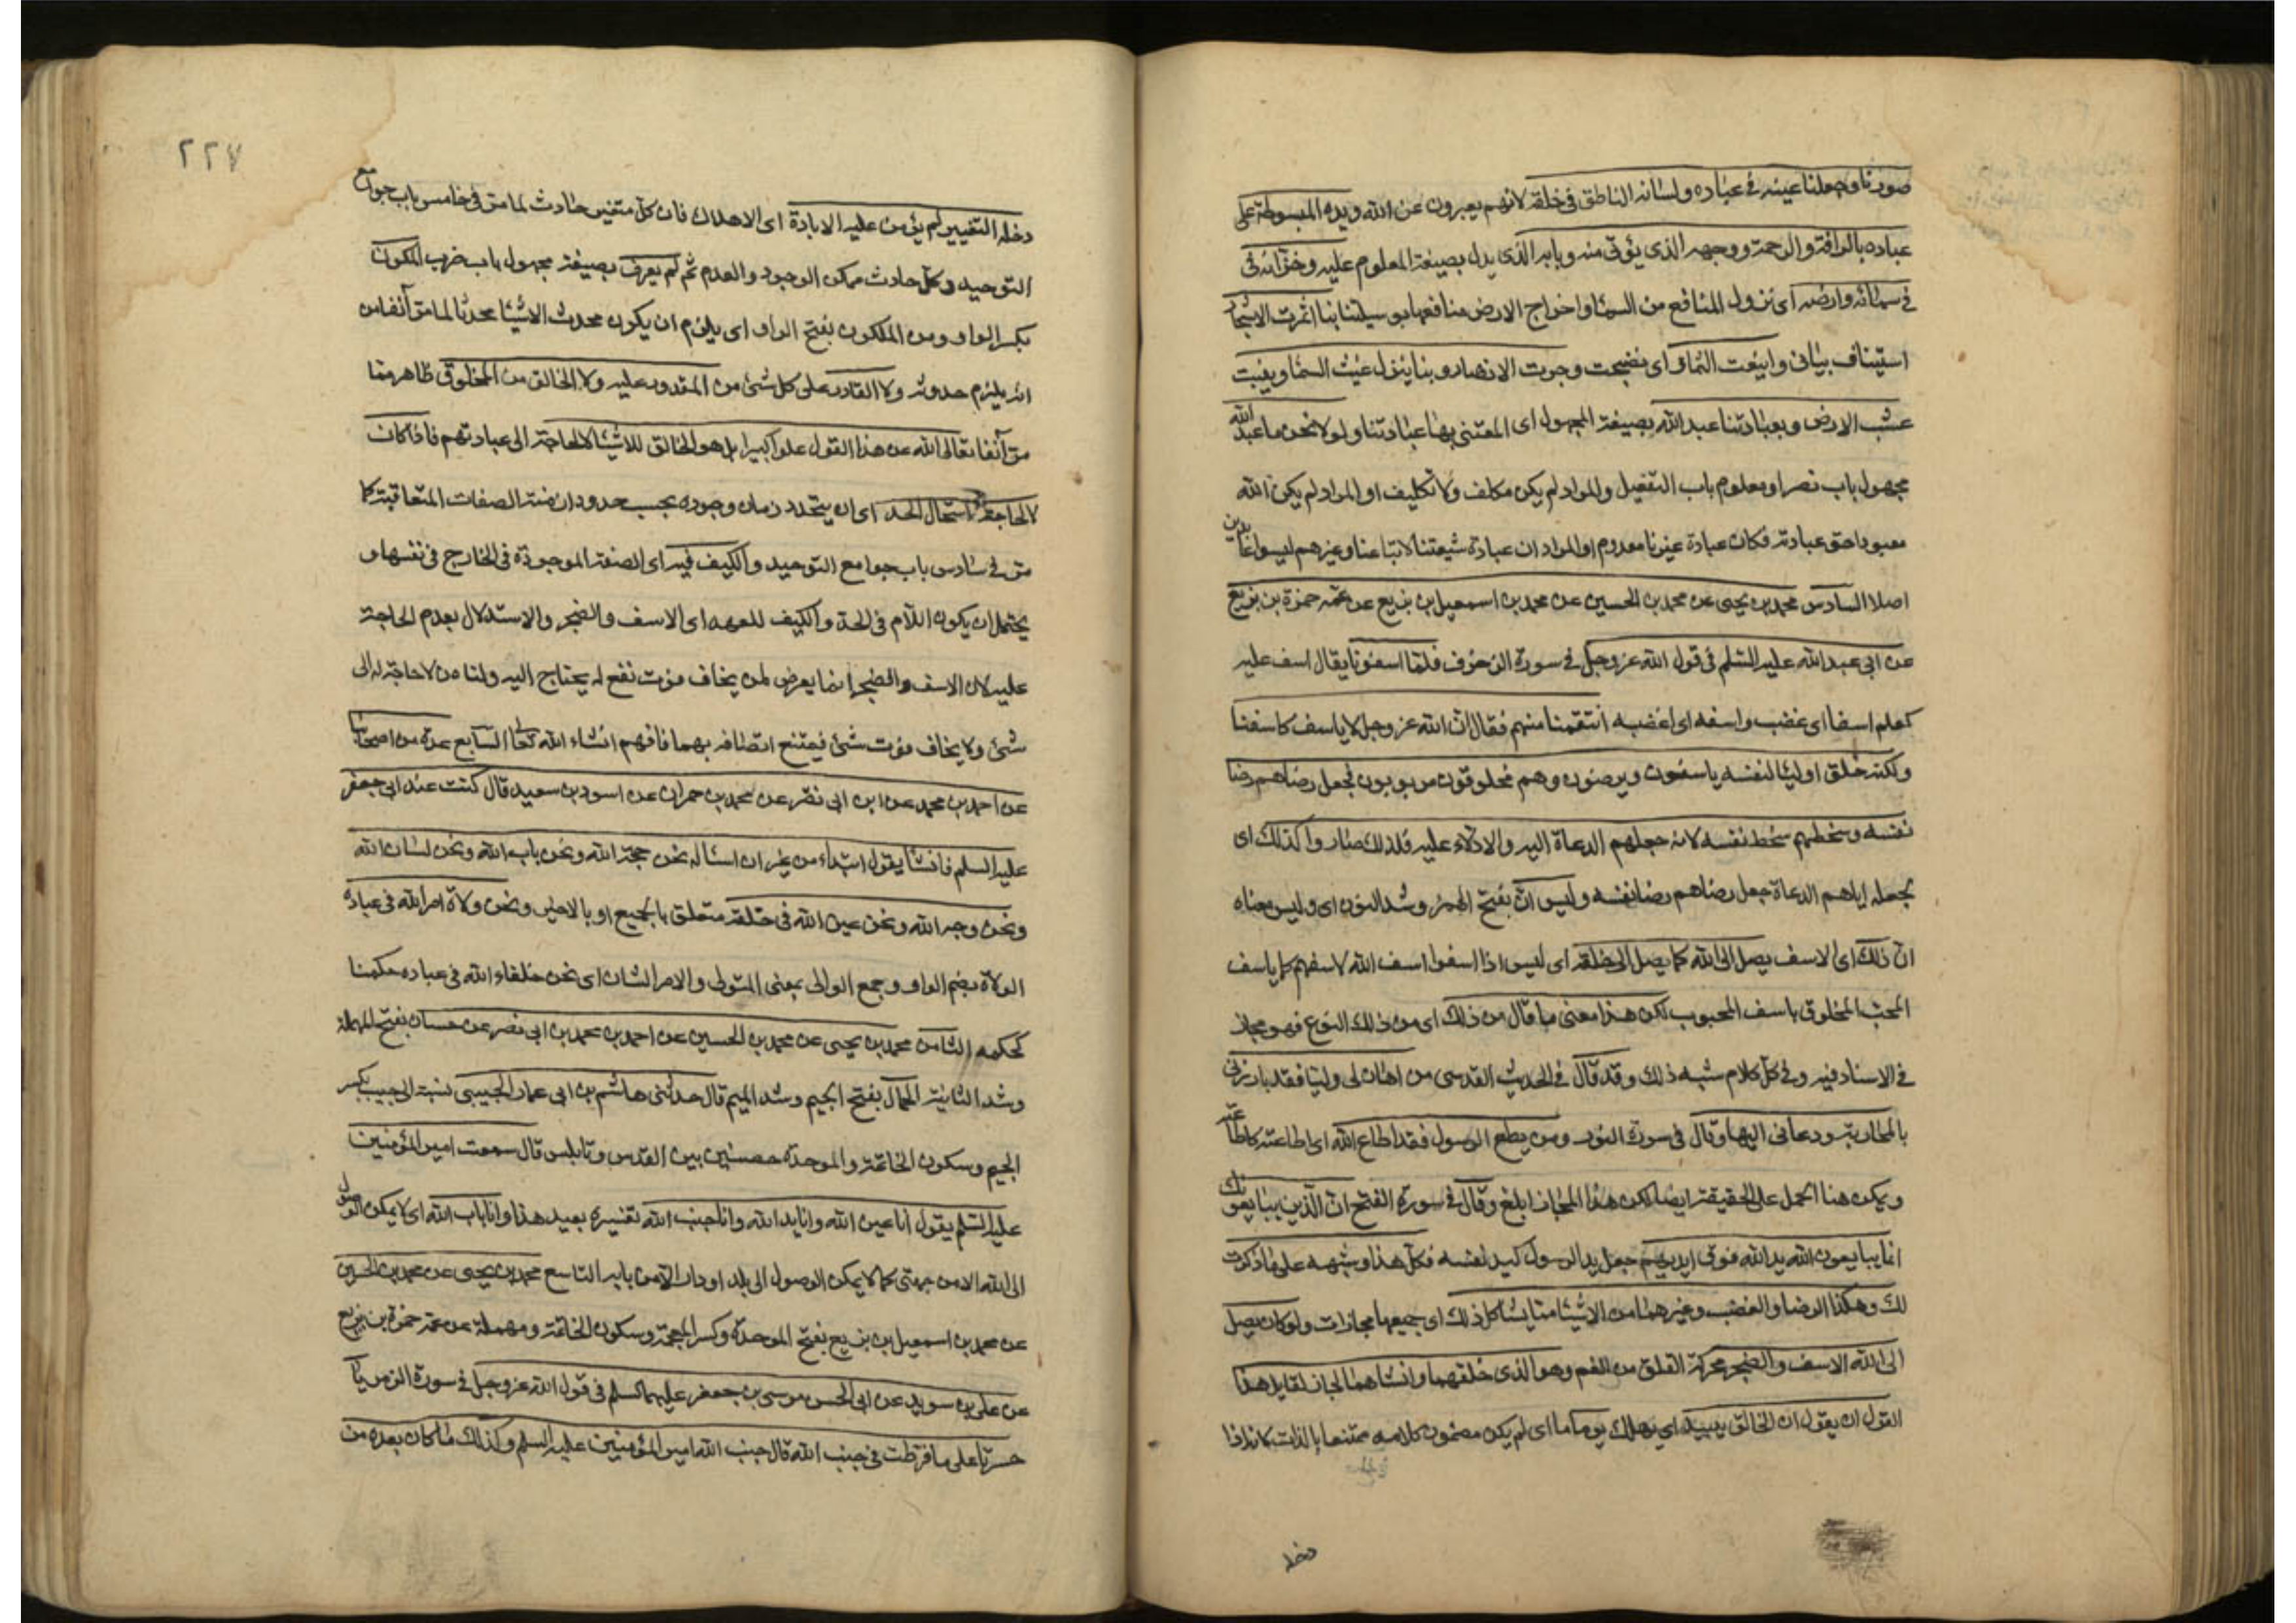 صورنا وجعلنا عينه في عباده ولسانه الناطق في خلقه لانهم يعبرون عن الله ويده المبسوطة على
عباده بالرافة والرحمة ووجهه الذي يؤتى منه وبابه الذي يدل بصيغة المعلوم عليه وخزانه في
في سمائه وارضه اى نزول المنافع من السماء واخراج الارض منافعها بوسيلتنا بنا اثمرت الاشجار
استيناف بيانى وايعنت الثمار اى نضجت وجرت الانهار وبنا ينزل غيث السماء وينبت
عشب الارض وبعبادتنا عبد الله بصيغة المجهول اى المعتنى بها عبادتنا ولولا نحن ما عبد الله
مجهول باب نصر او معلوم باب التفعيل والمراد لم يكن مكلف ولا تكليف او المراد لم يكن الله
معبودا حق عبادته فكان عبادة غيرنا معدوم او المراد ان عبادة شيعتنا لاتباعنا وغيرهم ليسوا عابدين
اصلا السادس محمد بن يحيى عن محمد بن الحسين عن محمد بن اسمعيل بن بزيع عن عمه حمزة بن بزيع
عن ابى عبد الله عليه السلم في قول الله عز وجل في سورة الزخرف فلما اسفونا يقال اسف عليه
كعلم اسفا اى غضب واسفه اى اغضبه انتقمنا منهم فقال ان الله عز وجل لا ياسف كاسفنا
ولكنه خلق اولياء لنفسه ياسفون ويرضون وهم مخلوقون مربوبون فجعل رضاهم رضا
نفسه وسخطهم سخط نفسه لانه جعلهم الدعاة اليه والادلاء عليه فلذلك صاروا كذلك اى
بجعله اياهم الدعاة جعل رضاهم رضا نفسه وليس ان بفتح الهمز وشد النون اى وليس معناه
ان ذلك اى الاسف يصل الى الله كما يصل الى خلقه اى ليس اذا اسفوا اسف الله لاسفهم كما ياسف
المحب المخلوق باسف المحبوب لكن هذا معنى ما قال من ذلك اى من ذلك النوع فهو مجاز
في الاسناد فيه وفي كل كلام شبه ذلك وقد قال في الحديث القدسى من اهان لى وليا فقد بارزنى
بالمحاربة ودعانى اليها وقال في سورة النور ومن يطع الرسول فقد اطاع الله اى اطاعته كاطاعته
ويمكن هنا الحمل على الحقيقة ايضا لكن هذا المجاز ابلغ وقال في سورة الفتح ان الذين يبايعونك
انما يبايعون الله يد الله فوق ايديهم جعل يد الرسول كيد نفسه فكل هذا وشبهه على ما ذكرت
لك وهكذا الرضا والغضب وغيرهما من الاشياء مما يشاكل ذلك اى جميعها مجازات ولو كان يصل
الى الله الاسف والضجر محركة القلق من الغم وهو الذى خلقهما وانشاهما لجاز لقايل هذا
القول ان يقول ان الخالق يبيد اى يهلك يوما ما اى لم يكن مضمون كلامه ممتنعا بالذات كانه اذا
دخله
٢٢٧
دخله التغيير لم يؤمن عليه الابادة اى الاهلاك فان كل متغير حادث لما مر في خامس باب جوامع
التوحيد وكل حادث ممكن الوجود والعدم ثم لم يعرف بصيغة مجهول باب ضرب المكون
بكسر الواو ومن المكون بفتح الواو اى يلزم ان يكون محدث الاشياء محدثا لما مر آنفا من
انه يلزم حدوثه ولا القادر على كل شئ من المقدور عليه ولا الخالق من المخلوق ظاهر مما
مر آنفا تعالى الله عن هذا القول علوا كبيرا بل هو الخالق للاشياء لا لحاجة الى عبادتهم فاذا كان
لا لحاجة استحال الحد اى ان يتحدد زمان وجوده بحسب حدود ازمنة الصفات المتعاقبة كما
مر في سادس باب جوامع التوحيد والكيف فيه اى الصفة الموجودة في الخارج في نفسها و
يحتمل ان يكون اللام في الحد والكيف للعهد اى الاسف والضجر والاستدلال بعدم الحاجة
عليه لان الاسف والضجر انما يعرض لمن يخاف فوت نفع له يحتاج اليه ولنا من لا حاجة له الى
شئ ولا يخاف فوت شئ فيمتنع اتصافه بهما فافهم انشاء الله تعالى السابع عدة من اصحابنا
عن احمد بن محمد عن ابن ابى نصر عن محمد بن حمران عن اسود بن سعيد قال كنت عند ابى جعفر
عليه السلم فانشا يقول ابتداء من غير ان اساله نحن حجة الله ونحن باب الله ونحن لسان الله
ونحن وجه الله ونحن عين الله في خلقه متعلق بالجميع او بالاخير ونحن ولاة امر الله في عباده
الولاة بضم الواو وجمع الوالى بمعنى المتولى والامر الشان اى نحن خلفاء الله في عباده حكمنا
كحكمه الثامن محمد بن يحيى عن محمد بن الحسين عن احمد بن محمد بن ابى نصر عن حسان بفتح المهملة
وشد الثانية الجمال بفتح الجيم وشد الميم قال حدثنى هاشم بن ابى عمار الجيبى نسبة الى جيب بكسر
الجيم وسكون الخاتمة والموحدة حصنين بين القدس ونابلس قال سمعت امير المؤمنين
عليه السلم يقول انا عين الله وانا يد الله وانا جنب الله تفسيره بعيد هذا وانا باب الله اى لا يمكن الوصول
الى الله الا من جهتى كما لا يمكن الوصول الى بلد او دار الا من بابه التاسع محمد بن يحيى عن محمد بن الحسين
عن محمد بن اسمعيل بن بزيع بفتح الموحدة وكسر المعجمة وسكون الخاتمة ومهملة عن عمه حمزة بن بزيع
عن على بن سويد عن ابى الحسن موسى بن جعفر عليهما السلم في قول الله عز وجل في سورة الزمر يا
حسرتا على ما فرطت في جنب الله قال جنب الله امير المؤمنين عليه السلم وكذلك ما كان بعده من